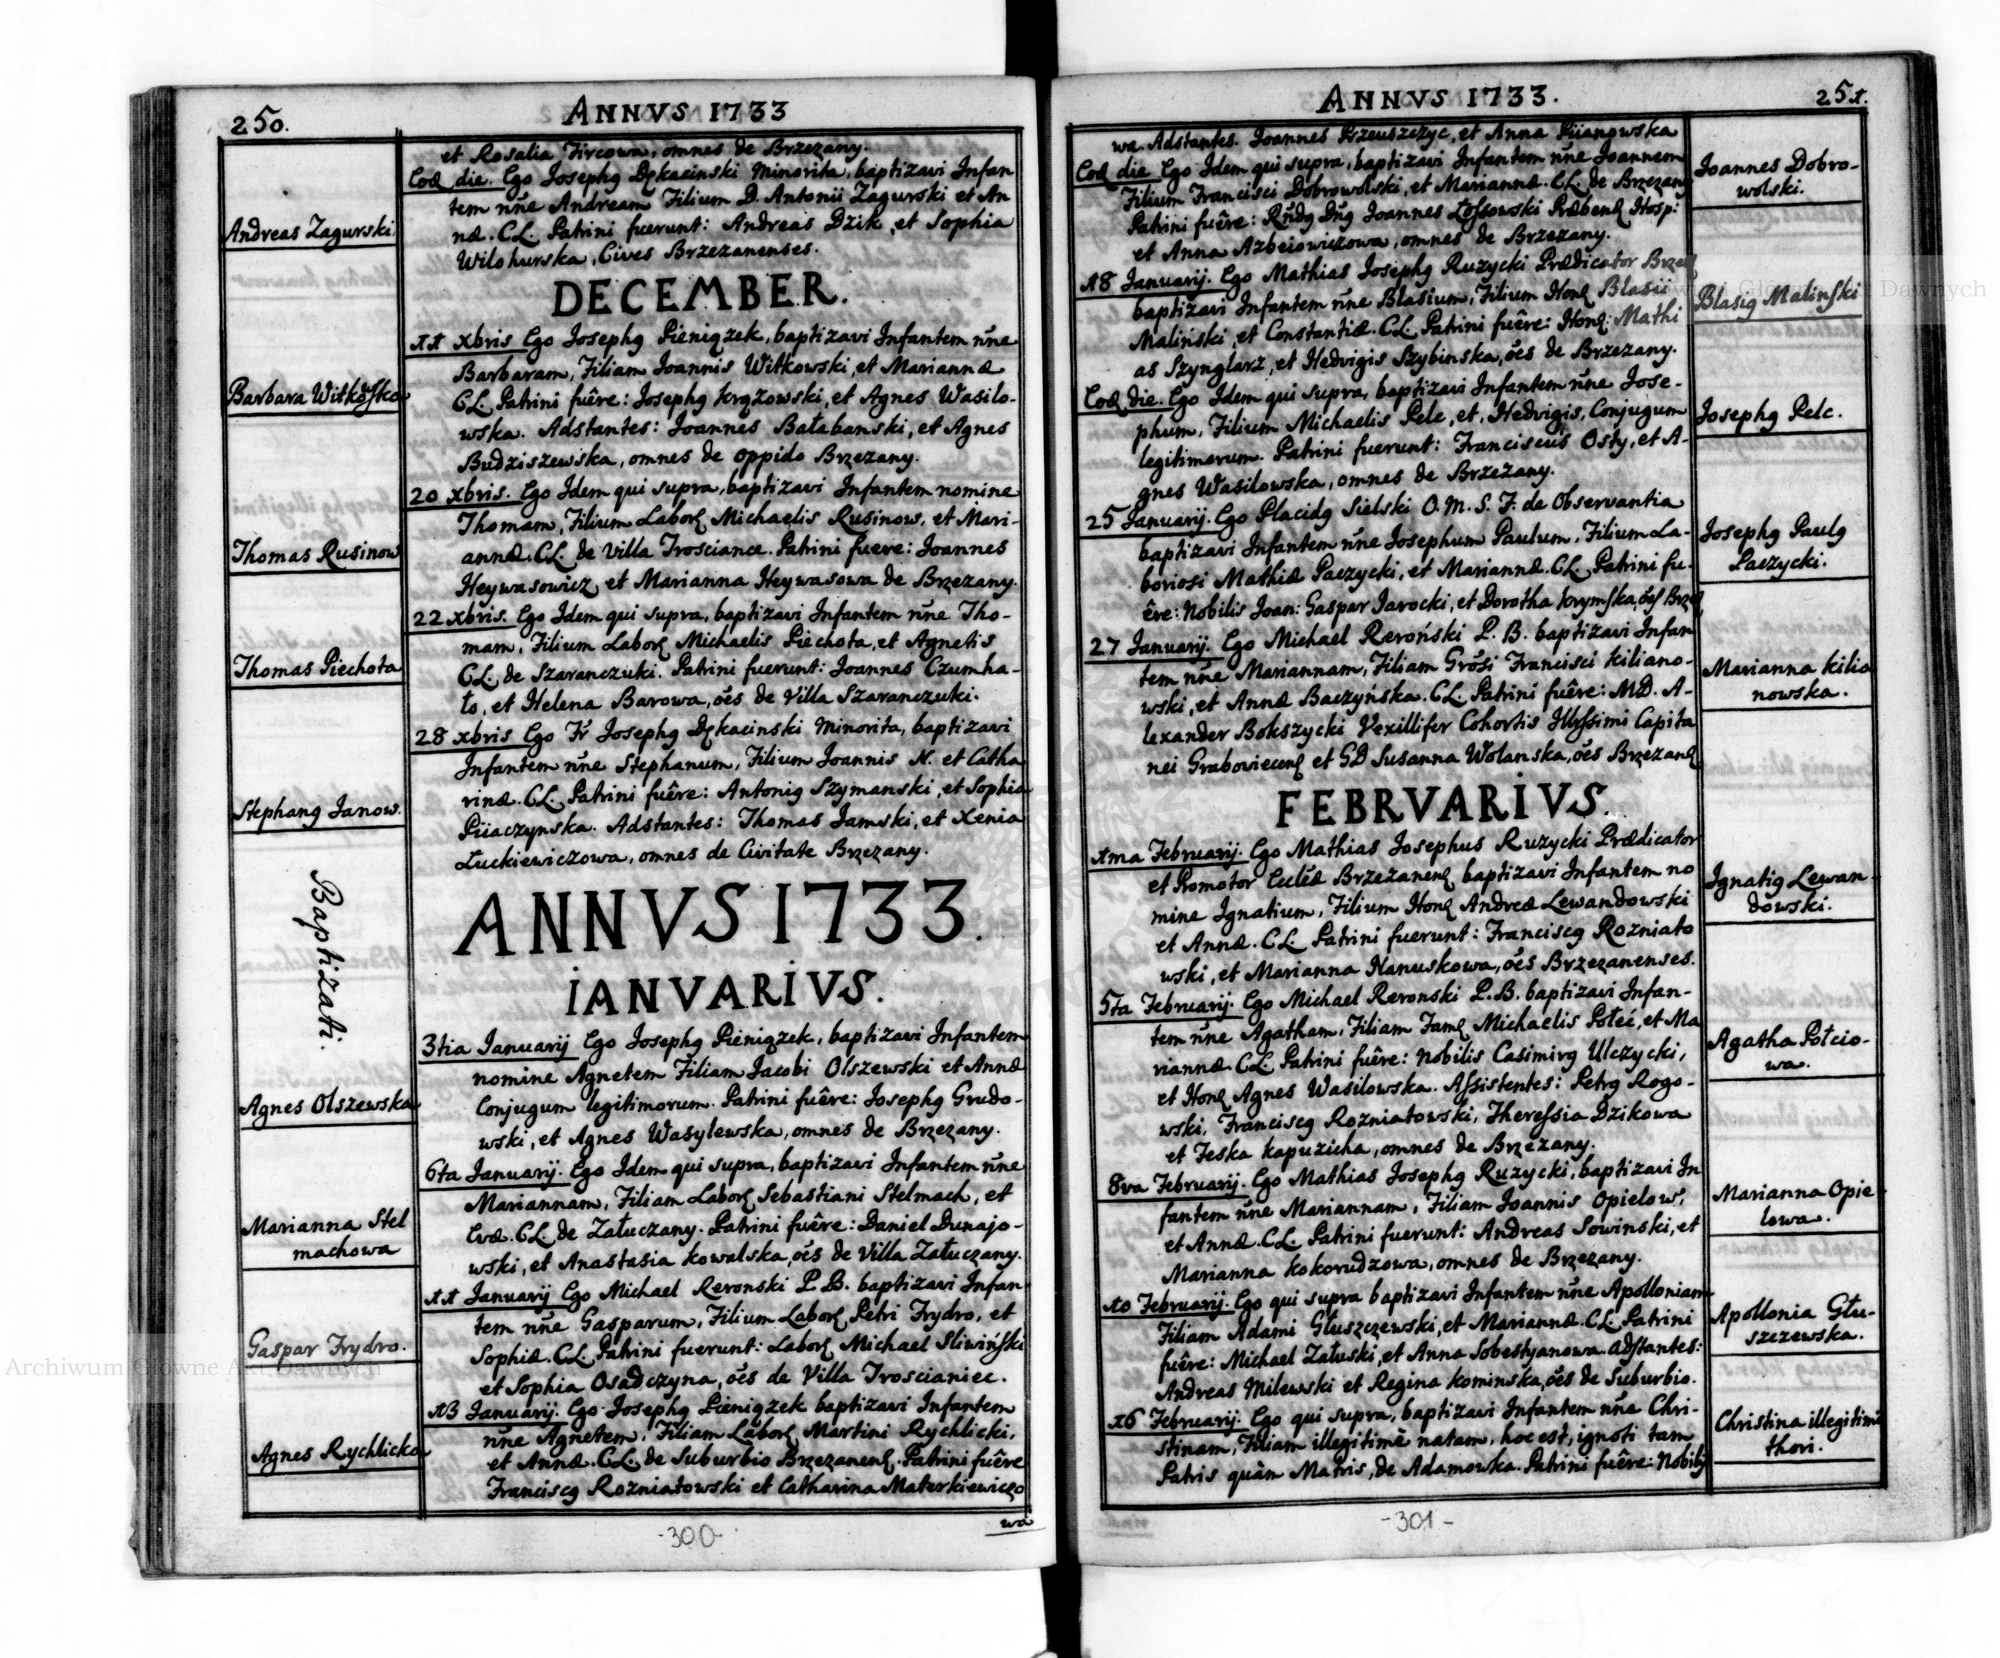 250.
ANNVS 1733
et Rosalia Fircowa, omnes de Brzezany.
Eod die. Ego Josephg Dękacinski Minorita, baptizavi Infan
tem nñe Andream Filium D. Antonii Zagurski et An
næ. CL. Patrini fuerunt: Andreas Dzik, et Sophia
Wilohurska, Cives Brzezanenses.
Andreas Zagurski.
DECEMBER.
11 xbris Ego Josephg Pieniązek, baptizavi Infantem nñe
Barbaram, Filiam Joannis Witkowski, et Mariannæ
CL. Patrini fuêre: Josephg Krążowski, et Agnes Wasilo-
wska. Adstantes: Joannes Bałabanski, et Agnes
Budziszewska, omnes de oppido Brzezany.
Barbara Witkoſka
20 xbris. Ego Idem qui supra, baptizavi Infantem nomine
Thomam, Filium Laborꝭ Michaelis Rusinow, et Mari-
annæ. CL. de Villa Troscianee. Patrini fuere: Joannes
Heywasowicz et Marianna Heywasowa de Brzezany.
Thomas Rusinow
22 xbris. Ego Idem qui supra, baptizavi Infantem nñe Tho-
mam, Filium Laborꝭ Michaelis Piechota, et Agnetis
CL. de Szaranczuki. Patrini fuerunt: Joannes Czumha-
to, et Helena Barowa, óes de Villa Szaranczuki.
Thomas Piechota
28 xbris Ego Fr Josephg Dękacinski Minorita, baptizavi
Infantem nñe Stephanum, Filium Joannis N. et Catha
rinæ. CL. Patrini fuêre: Antonig Szymanski, et Sophia
Piiaczynska. Adstantes: Thomas Jamski, et Xenia
Łuckiewiczowa, omnes de Civitate Brzezany.
Stephang Janow.
ANNVS 1733.
Baptizati.
IANVARIVS.
3tia Januarij Ego Josephg Pieniązek, baptizavi Infantem
nomine Agnetem Filiam Jacobi Olszewski et Annæ
Conjugum legitimorum. Patrini fuêre: Josephg Grudo-
wski, et Agnes Wasylewska, omnes de Brzezany.
Agnes Olszewska
6ta Januarij. Ego Idem qui supra, baptizavi Infantem nñe
Mariannam, Filiam Laborꝭ Sebastiani Stelmach, et
Evæ. CL. de Załuczany. Patrini fuêre: Daniel Dunajo-
wski, et Anastasia Kowalska, óes de Villa Załuczany.
Marianna Stel
machowa
11 Januarij Ego Michael Reronski P. B. baptizavi Infan-
tem nñe Gasparum, Filium Laborꝭ Petri Frydro, et
Sophiæ. CL. Patrini fuerunt: Laborꝭ Michael Sliwinſki
et Sophia Osadczyna, óes de Villa Troscianiee.
Gaspar Frydro.
13 Januarij. Ego Josephg Pieniązek baptizavi Infantem
nñe Agnetem, Filiam Laborꝭ Martini Rychlicki,
et Annæ. CL. de Suburbio Brzezanenꝭ. Patrini fuêre
Franciscg Rozniatowski et Catharina Materkiewiczo
wa
Agnes Rychlicka
-300-
ANNVS 1733.
251.
wa. Adstantes. Joannes Przeuszczyc, et Anna Piianowska
Eod die Ego Idem qui supra, baptizavi Infantem nñe Joannem
Filium Francisci Dobrowolski, et Mariannæ. CL. de Brzezany
Patrini fuêre: Rñdg Dñg Joannes Łoſsowski Præbenꝭ Hosp:
et Anna Azbeiowiczowa, omnes de Brzezany.
Joannes Dobro-
wolski.
18 Januarij. Ego Mathias Josephg Ruzycki Prædicator Brzezꝭ
baptizavi Infantem nñe Blasium, Filium Honꝭ Blasii
Maliński, et Constantiæ. CL. Patrini fuêre: Honꝭ: Mathi
as Szynglarz, et Hedvigis Szybinska, óes de Brzezany.
Blasig Malinſki
Eod die. Ego Idem qui supra, baptizavi Infantem nñe Jose-
phum, Filium Michaelis Pelc, et, Hedvigis, Conjugum
legitimorum. Patrini fuerunt: Franciscus Osty, et A-
gnes Wasilowska, omnes de Brzezany.
Josephg Pelc.
25 Januarij. Ego Placidg Sielski O. M. S. F. de Observantia
baptizavi Infantem nñe Josephum Paulum, Filium La-
boriosi Mathiæ Paczycki, et Mariannæ. CL. Patrini fu-
êre: Nobilis Joan: Gaspar Jarocki, et Dorotha Krymſka, óeſ Brzeꝭ
Josephg Paulg
Paczycki.
27 Januarij. Ego Michael Reroński P. B. baptizavi Infan
tem nñe Mariannam, Filiam Grósi Francisci Kiliano-
wski, et Annæ Baczyńska. CL. Patrini fuêre: MD. A-
lexander Bokszycki Vexillifer Cohortis Illſſsimi Capita
nei Grabovieceꝭ et GD Susanna Wolanska, óes Brzezanꝭ
Marianna Kilia
nowska.
FEBRVARIVS.
1ma Februarij. Ego Mathias Josephus Ruzycki Prædicator
et Promotor Eccłæ Brzezanenꝭ baptizavi Infantem no
mine Ignatium, Filium Honꝭ Andreæ Lewandowski
et Annæ. CL. Patrini fuerunt: Franciscg Rozniato
wski, et Marianna Hanuskowa, óes Brzezanenses.
Ignatig Lewan-
dowski.
5ta Februarij. Ego Michael Reronski P. B. baptizavi Infan-
tem nñe Agatham, Filiam Famꝭ Michaelis Połeć, et Ma
riannæ. CL. Patrini fuêre: Nobilis Casimirg Ulczycki,
et Honꝭ Agnes Wasilowska. Aſsistentes: Petrg Rogo-
wski, Franciscg Rozniatowski, Thereſsia Dzikowa
et Feska Kapuzicha, omnes de Brzezany.
Agatha Połcio-
wa.
8va Februarij. Ego Mathias Josephg Ruzycki, baptizavi In
fantem nñe Mariannam, Filiam Joannis Opielow,
et Annæ. CL. Patrini fuerunt: Andreas Sowinski, et
Marianna Kokorudzowa, omnes de Brzezany.
Marianna Opie
lowa.
10 Februarij. Ego qui supra baptizavi Infantem nñe Apolloniam
Filiam Adami Głuszczewski, et Mariannæ. CL. Patrini
fuêre: Michael Załuski, et Anna Sobestyanowa. Adſtantes:
Andreas Milewski et Regina Kominska, óes de Suburbio.
Apollonia Głu-
szczewska.
16 Februarij. Ego qui supra, baptizavi Infantem nñe Chri-
stinam, Filiam illegitimè natam, hoc est, ignoti tam
Patris quàm Matris, de Adamowka. Patrini fuêre: Nobilꝭ
Christina illegitimi
thori.
-301-
Archiwum Głowne Akt Dawnych
Archiwum Głowne Akt Dawnych